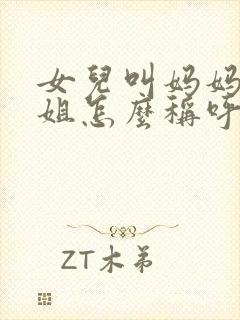 女兒叫妈妈
姐怎麼稱呼
ZT木弟